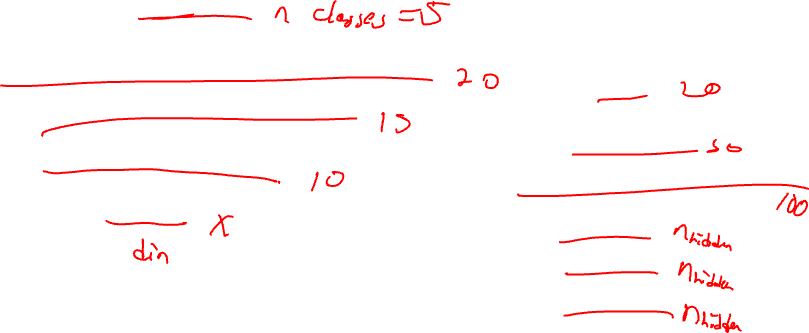 n classes = 5
20
15
10
X
din
20
50
100
nhidden
nhidden
nhidden